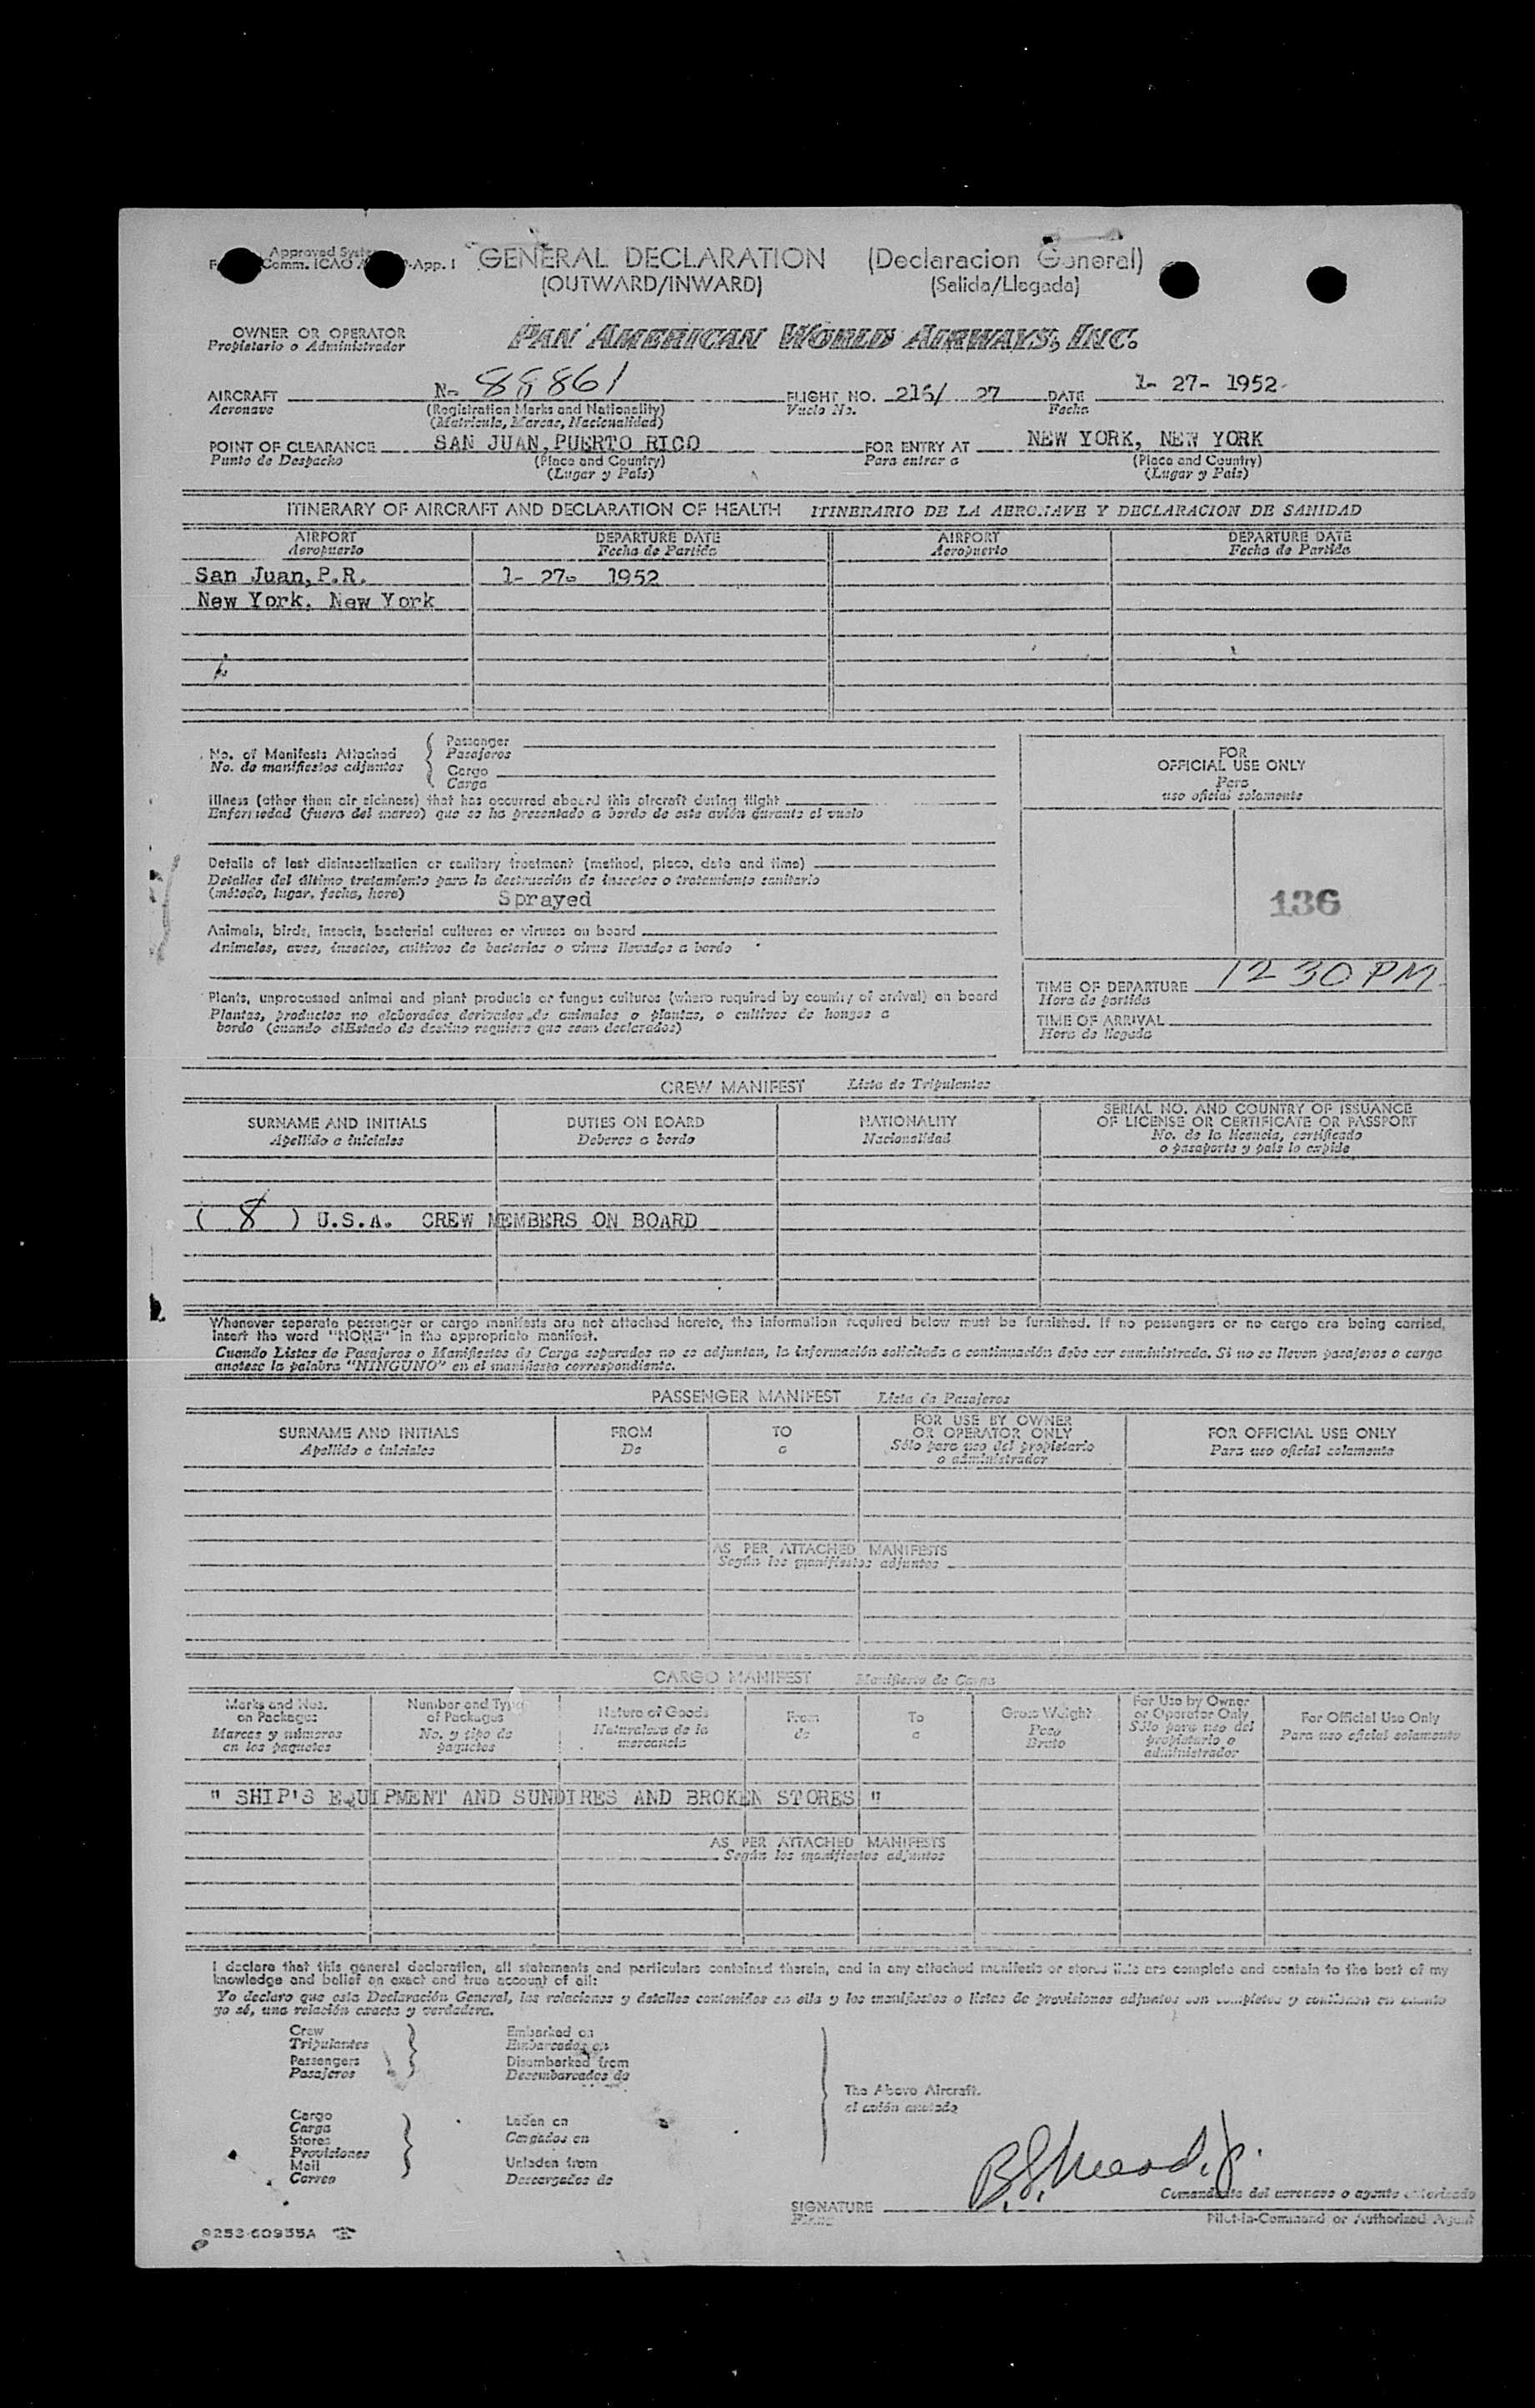 Approved
Comm. ICAO App. 1
GENERAL DECLARATION (Declaracion General)
(OUTWARD/INWARD) (Salida/Llegada)
OWNER OR OPERATOR
Propietario o Administrador
PAN AMERICAN WORLD AIRWAYS, INC.
AIRCRAFT N- 88861 FLIGHT NO. 216/ 27 DATE 1- 27- 1952
Aeronave (Registration Marks and Nationality) Vuelo No. Fecha
(Matricula, Marcas, Nacionalidad)
POINT OF CLEARANCE SAN JUAN, PUERTO RICO FOR ENTRY AT NEW YORK, NEW YORK
Punto de Despacho (Place and Country) Para entrar a (Place and Country)
(Lugar y País) (Lugar y País)
ITINERARY OF AIRCRAFT AND DECLARATION OF HEALTH ITINERARIO DE LA AERONAVE Y DECLARACION DE SANIDAD
AIRPORT DEPARTURE DATE AIRPORT DEPARTURE DATE
Aeropuerto Fecha de Partida Aeropuerto Fecha de Partida
San Juan, P.R. 1- 27- 1952
New York, New York
No. of Manifests Attached
No. de manifiestos adjuntos
Passenger
Pasajeros
Cargo
Carga
Illness (other than air sickness) that has occurred aboard this aircraft during flight
Enfermedad (fuera del mareo) que se ha presentado a bordo de este avión durante el vuelo
Details of last disinsectization or sanitary treatment (method, place, date and time)
Detalles del último tratamiento para la destrucción de insectos o tratamiento sanitario
(método, lugar, fecha, hora) Sprayed
Animals, birds, insects, bacterial cultures or viruses on board
Animales, aves, insectos, cultivos de bacterias o virus llevados a bordo
Plants, unprocessed animal and plant products or fungus cultures (where required by country of arrival) on board
Plantas, productos no elaborados derivados de animales o plantas, o cultivos de hongos a
bordo (cuando elEstado de destino requiere que sean declarados)
FOR
OFFICIAL USE ONLY
Para
uso oficial solamente
136
TIME OF DEPARTURE 12 30 PM
Hora de partida
TIME OF ARRIVAL
Hora de llegada
CREW MANIFEST Lista de Tripulantes
SURNAME AND INITIALS DUTIES ON BOARD NATIONALITY SERIAL NO. AND COUNTRY OF ISSUANCE
OF LICENSE OR CERTIFICATE OR PASSPORT
Apellido e iniciales Deberes a bordo Nacionalidad No. de la licencia, certificado
o pasaporte y país lo expide
( 8 ) U.S.A. CREW MEMBERS ON BOARD
Whenever separate passenger or cargo manifests are not attached hereto, the information required below must be furnished. If no passengers or no cargo are being carried,
insert the word "NONE" in the appropriate manifest.
Cuando Listas de Pasajeros o Manifiestos de Carga separados no se adjuntan, la información solicitada a continuación debe ser suministrada. Si no se lleven pasajeros o carga
anotese la palabra "NINGUNO" en el manifiesto correspondiente.
PASSENGER MANIFEST Lista de Pasajeros
SURNAME AND INITIALS FROM TO FOR USE BY OWNER FOR OFFICIAL USE ONLY
OR OPERATOR ONLY
Apellido e iniciales De a Sólo para uso del propietario Para uso oficial solamente
o administrador
AS PER ATTACHED MANIFESTS
Según los manifiestos adjuntos
CARGO MANIFEST Manifiesto de Carga
Marks and Nos. on Packages Number and Type of Packages Nature of Goods From To Gross Weight For Use by Owner or Operator Only For Official Use Only
Marcas y números en los paquetes No. y tipo de paquetes Naturaleza de la mercancía de a Peso Bruto Sólo para uso del propietario o administrador Para uso oficial solamente
" SHIP'S EQUIPMENT AND SUNDIRES AND BROKEN STORES "
AS PER ATTACHED MANIFESTS
Según los manifiestos adjuntos
I declare that this general declaration, all statements and particulars contained therein, and in any attached manifests or stores lists are complete and contain to the best of my
knowledge and belief an exact and true account of all:
Yo declaro que esta Declaración General, las relaciones y detalles contenidos en ella y los manifiestos o listas de provisiones adjuntos son completos y contienen en cuanto
yo sé, una relación exacta y verdadera.
Crew
Tripulantes
Passengers
Pasajeros
Embarked on
Embarcados en
Disembarked from
Desembarcados de
Cargo
Carga
Stores
Provisiones
Mail
Correo
Laden on
Cargados en
Unladen from
Descargados de
The Above Aircraft.
el avión anotado
SIGNATURE
Firma
Comandante del aeronave o agente autorizado
Pilot-in-Command or Authorized Agent
9253-60935A